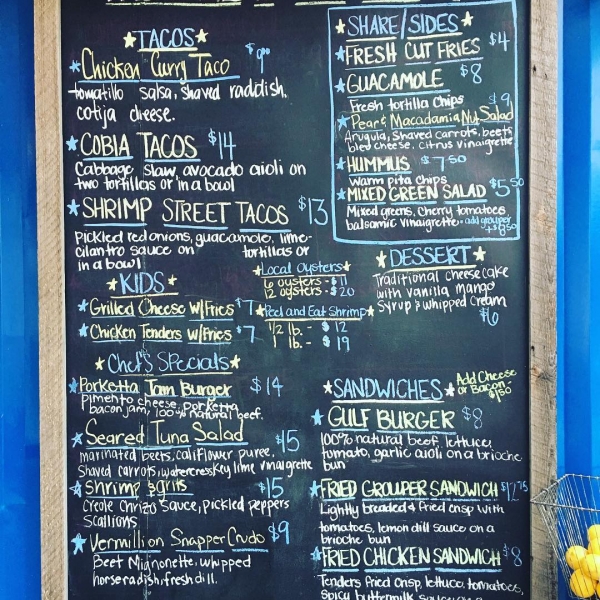 TACOS
Chicken Curry Taco $9
tomatillo salsa, shaved raddish,
cotija cheese.
COBIA TACOS $14
Cabbage slaw, avocado aioli on
two tortillas or in a bowl
SHRIMP STREET TACOS $13
Pickled red onions, guacamole, lime-
cilantro sauce on tortillas or
in a bowl
KIDS
Grilled Cheese w/Fries $7
Chicken Tenders w/Fries $7
Local Oysters
6 oysters - $11
12 oysters - $20
Peel and Eat Shrimp
1/2 lb. - $12
1 lb. - $19
Chef's Specials
Porketta Jam Burger $14
pimento cheese, porketta,
bacon jam, 100% natural beef.
Seared Tuna Salad $15
marinated beets, califlower puree,
Shaved carrots, watercress, Key lime vinaigrette
Shrimp & grits $15
Creole Chrizo Sauce, pickled peppers
scallions
Vermillion Snapper Crudo $9
Beet Mignonette, whipped
horseradish, fresh dill.
SHARE/SIDES
FRESH CUT FRIES $4
GUACAMOLE $8
Fresh tortilla chips
Pear & Macadamia Nut Salad $9
Arugula, Shaved carrots, beets
bleu cheese, citrus vinaigrette
HUMMUS $7.50
Warm pita chips
MIXED GREEN SALAD $5.50
Mixed greens, Cherry tomatoes
balsamic vinaigrette - add grouper
+$8.50
DESSERT
Traditional cheesecake
with vanilla mango
syrup & whipped cream
$6
SANDWICHES
Add Cheese
or Bacon
$1.50
GULF BURGER $8
100% natural beef, lettuce,
tomato, garlic aioli on a brioche
bun
FRIED GROUPER SANDWICH $12.75
Lightly breaded & fried crisp with
tomatoes, lemon dill sauce on a
brioche bun
FRIED CHICKEN SANDWICH $8
Tenders fried crisp, lettuce, tomatoes,
spicy buttermilk